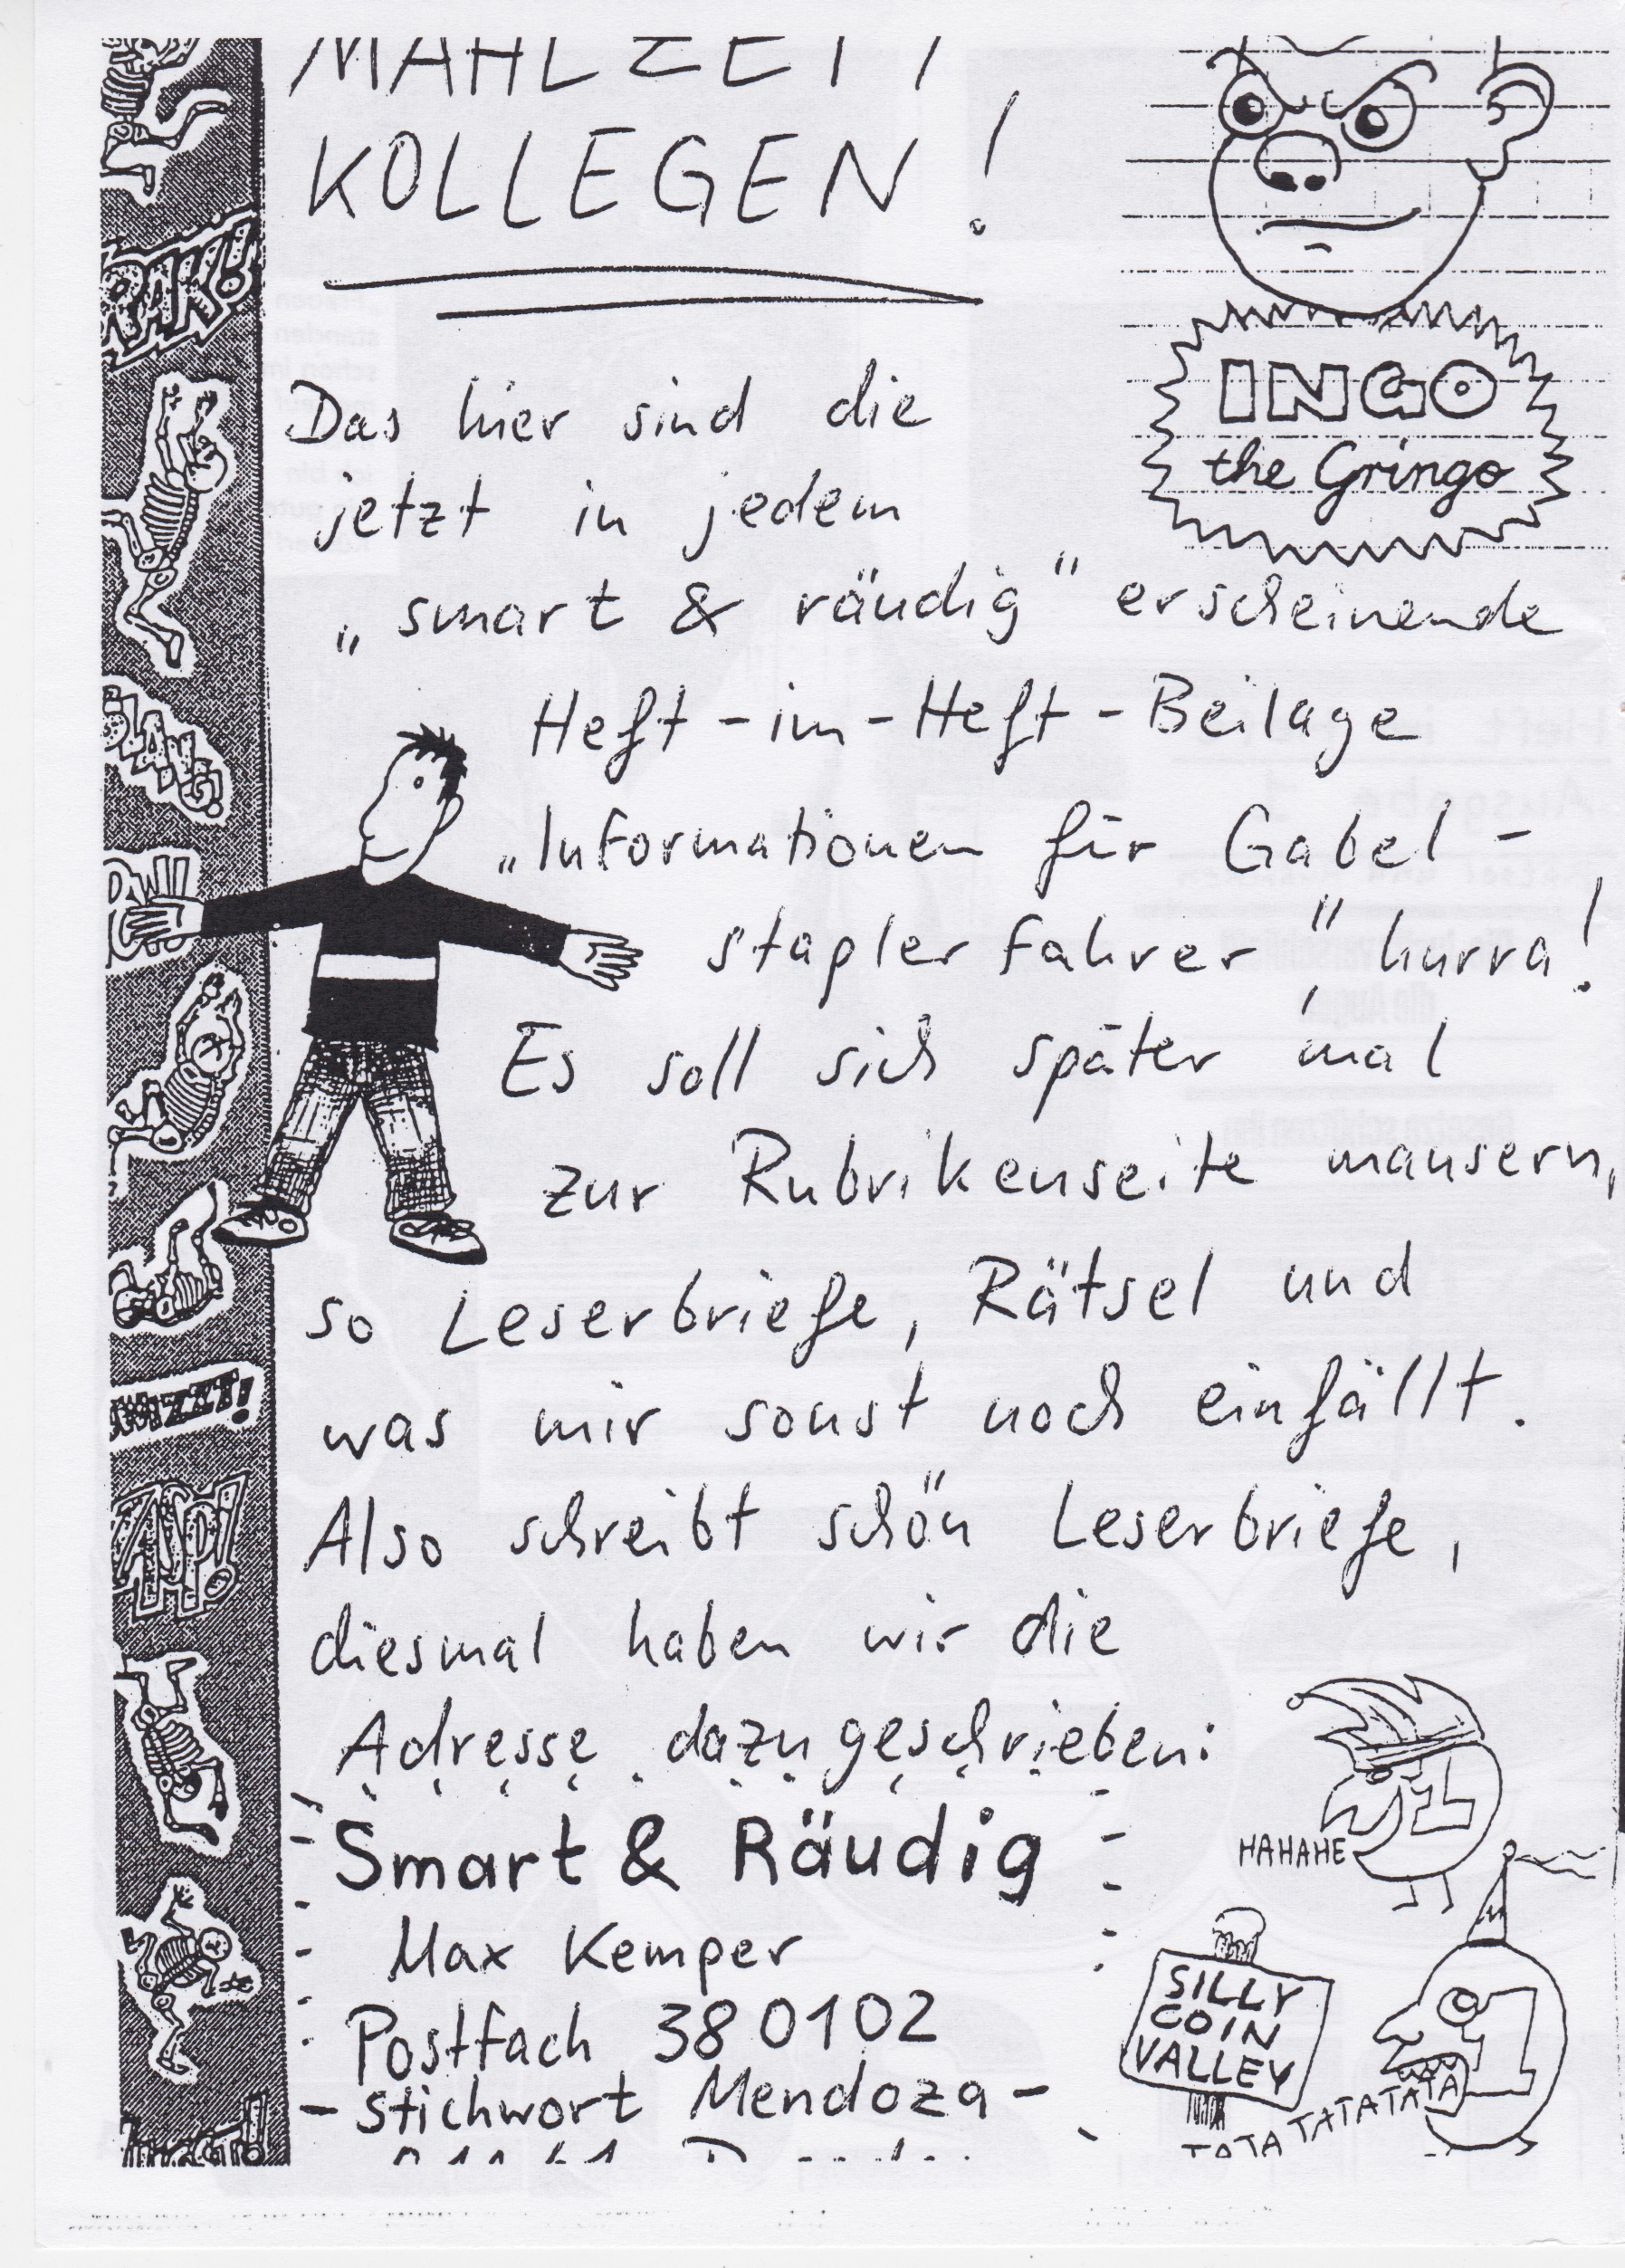 MAHLZEIT
KOLLEGEN!
INGO
the Gringo
Das hier sind die
jetzt in jedem
„smart & räudig" erscheinende
Heft-im-Heft-Beilage
„Informationen für Gabel-
staplerfahrer", hurra!
Es soll sich später mal
zur Rubrikenseite mausern,
so Leserbriefe, Rätsel und
was mir sonst noch einfällt.
Also schreibt schön Leserbriefe,
diesmal haben wir die
Adresse dazugeschrieben:
Smart & Räudig
Max Kemper
Postfach 380102
-Stichwort Mendoza-
HAHAHE
SILLY
COIN
VALLEY
TATA TATATATATA
RAK!
ZAPP!